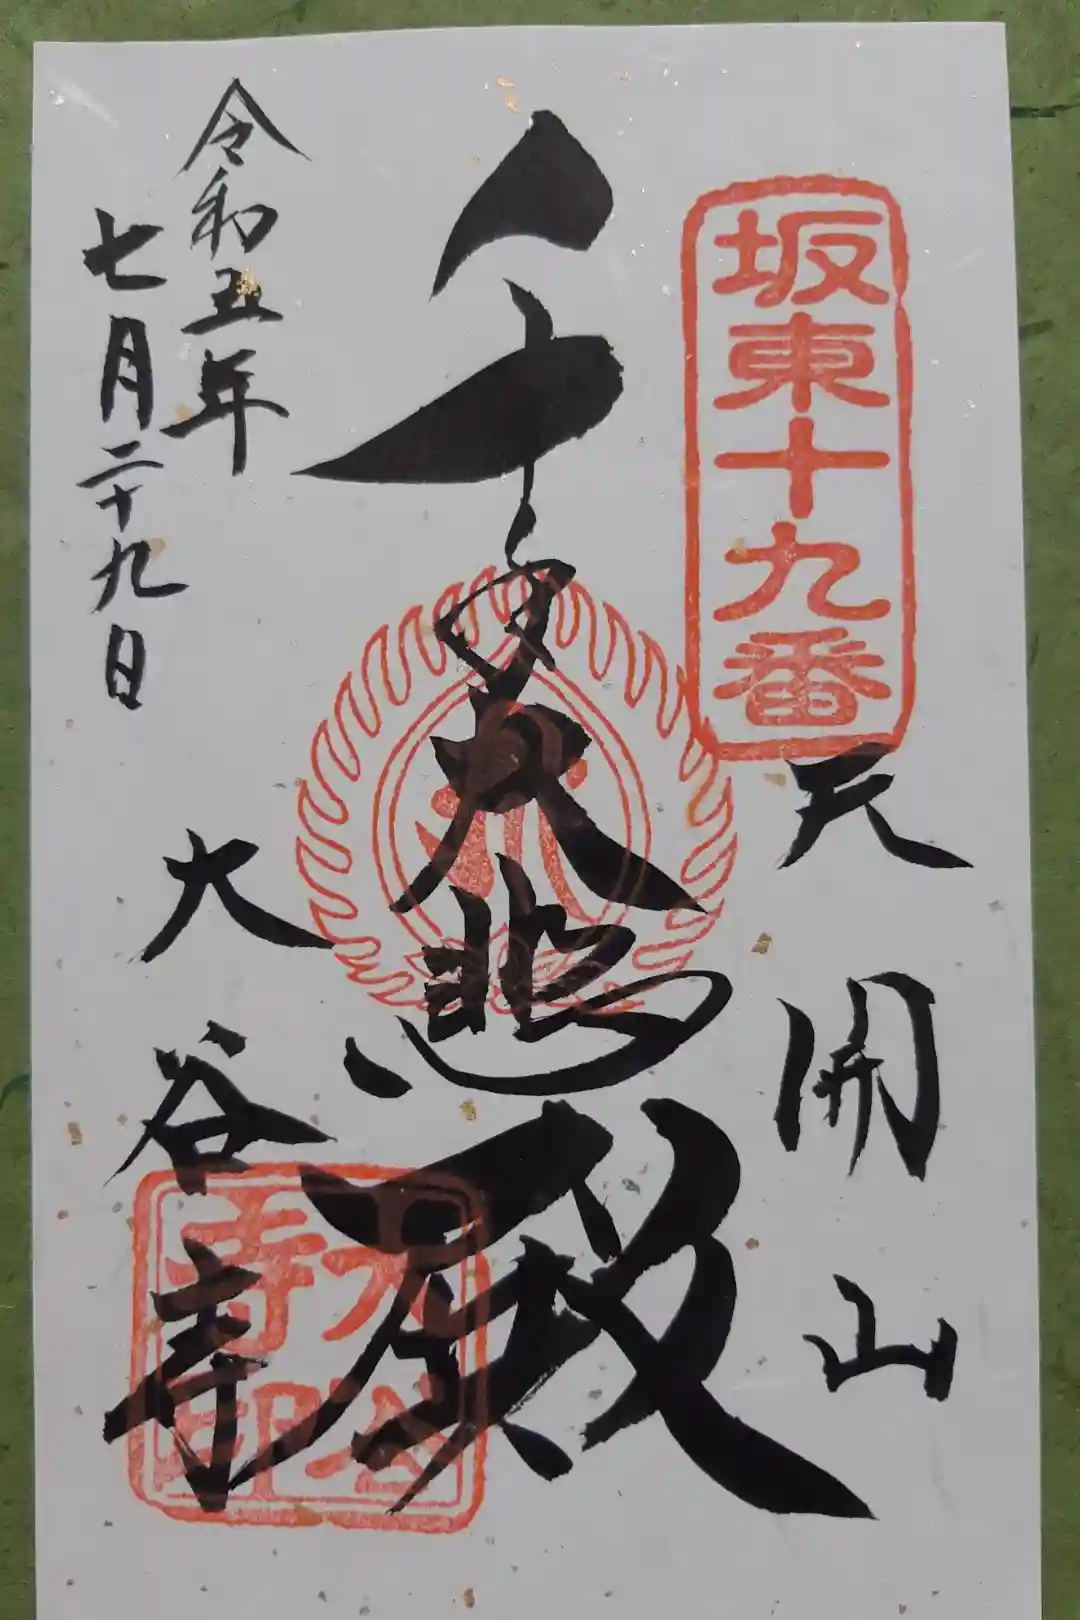 坂東十九番
天開山
千手大悲殿
大谷寺印
令和五年
七月二十九日
大谷寺